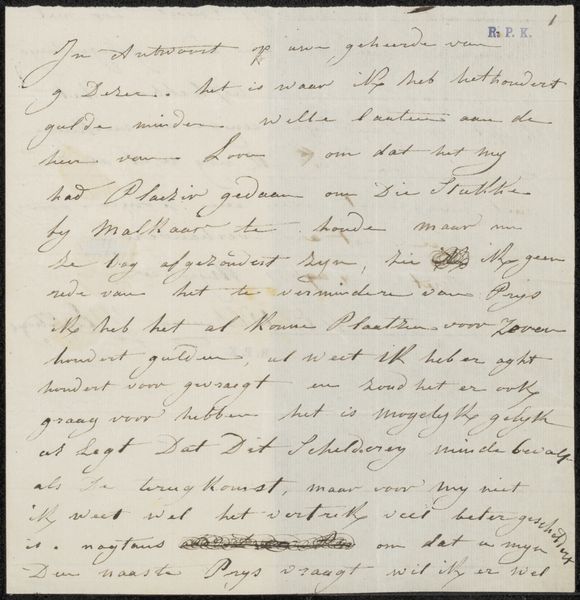 R. P. K.
1
In Antwoort op uwe geherde van
9 Dezer. het is waar Ik heb hethondert
gulde minder wille laaten aan de
heer van Loon om dat het my
had Plaezir gedaan om Die Stukke
by malkaar te houde maar nu
ze tog afgezondert zyn, zie Ik geen
rede van het te verminderen van Prys
ik heb het al konne Plaatzen voor Zoven
hondert gulden, al weet Ik heb er aght
hondert voor gevraagt en zoud het er ook
graag voor hebben het is mogelyk gelyk
as zegt Dat Dit Schelderey minde bevalt
als De terugkomst, maar voor my niet
ik weet wel het vertrek veel beter geschildert
is. nogtans om dat u myn
Den naaste Prys vraagt wil ik er wel